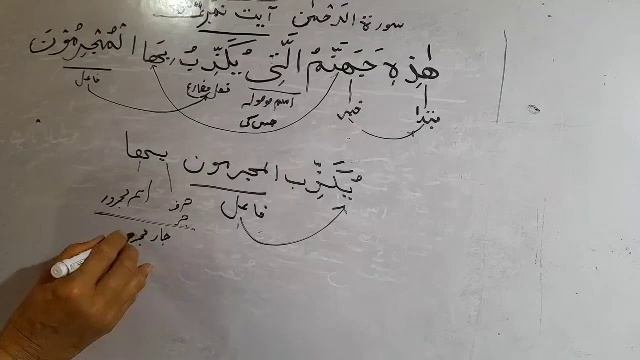 سورة الرحمٰن آیت نمبر
هٰذِهٖ جَهَنَّمُ الَّتِی یُكَذِّبُ بِهَا الْمُجْرِمُوْنَ
مبتدا خبر اسم موصولہ فعل مضارع فاعل
جس کی
یُكَذِّب المجرمون بها
فاعل حرف جر اسم مجرور
جار مجرو